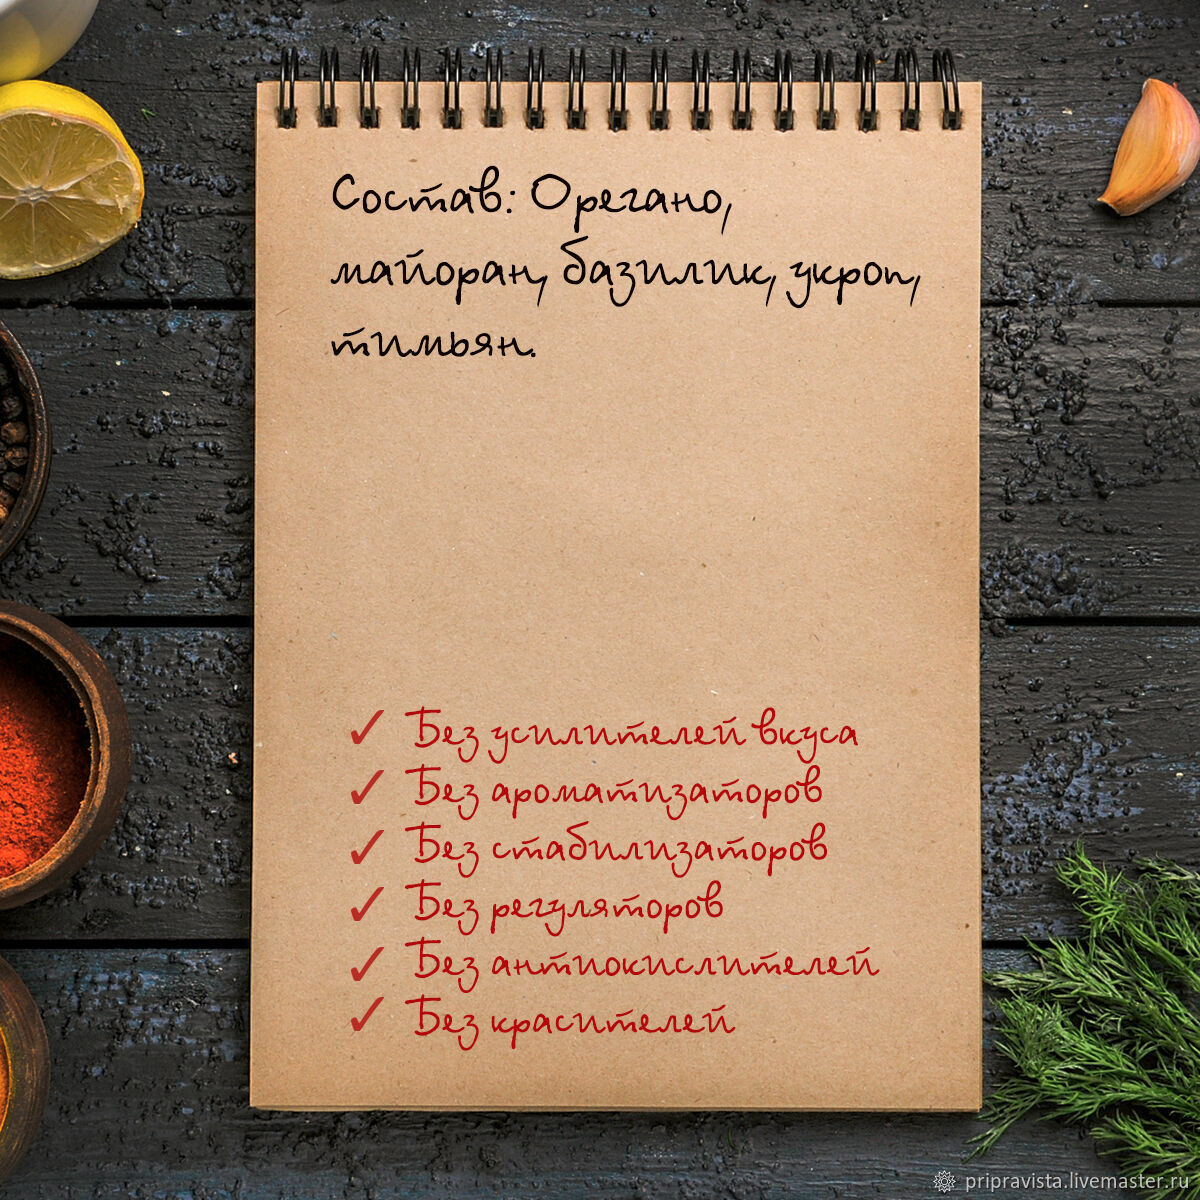 Состав: Орегано,
майоран, базилик, укроп,
тимьян.
✓ Без усилителей вкуса
✓ Без ароматизаторов
✓ Без стабилизаторов
✓ Без регуляторов
✓ Без антиокислителей
✓ Без красителей
pripravista.livemaster.ru